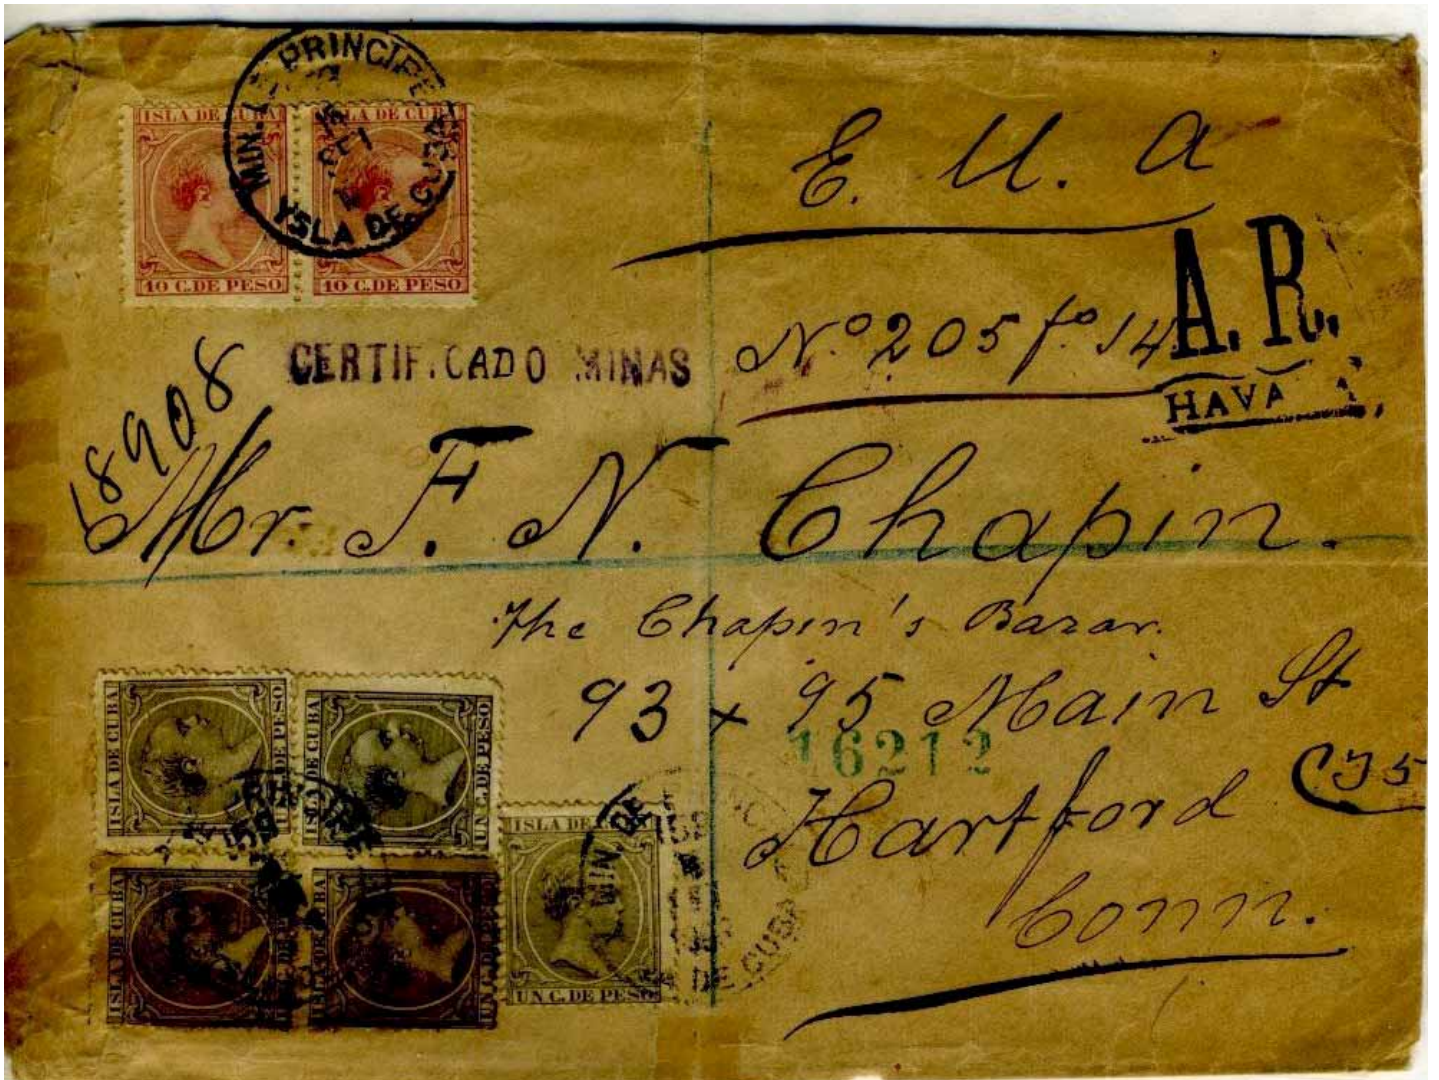 PRINCIPE
YSLA DE CUBA
ISLA DE CUBA
ISLA DE CUBA
10 C. DE PESO
10 C. DE PESO
E. U. A
A. R.
HAVA
CERTIFICADO MINAS
Nº 205 fº 14
18908
Mr. F. N. Chapin.
The Chapin's Bazar.
93 + 95 Main St
16212
Hartford
Conn.
ISLA DE CUBA
UN C. DE PESO
ISLA DE CUBA
UN C. DE PESO
ISLA DE CUBA
ISLA DE CUBA
UN C. DE PESO
ISLA DE
UN C. DE PESO
MIN. DE
DE CUBA